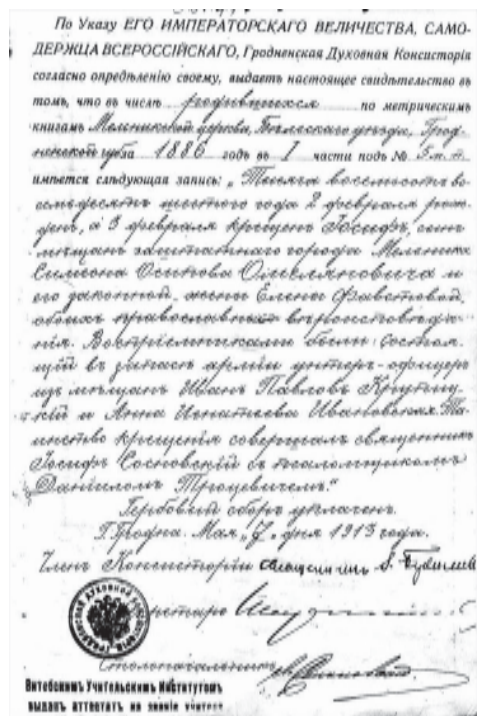 По Указу ЕГО ИМПЕРАТОРСКАГО ВЕЛИЧЕСТВА, САМО-
ДЕРЖЦА ВСЕРОССІЙСКАГО, Гродненская Духовная Консисторія
согласно опредѣленію своему, выдаетъ настоящее свидѣтельство въ
томъ, что въ числѣ родившихся по метрическимъ
книгамъ Мельникской церкви, Бѣльскаго уѣзда, Грод-
ненской губ. за 1886 годъ въ I части подъ № 5 м. п.
имѣется слѣдующая запись: „Тысяча восемьсотъ во-
семьдесятъ шестого года 2 февраля рож-
денъ, а 3 февраля крещенъ Іосифъ, сынъ
мѣщанъ заштатнаго города Мельника
Симеона Осипова Омельяновича и
его законной жены Елены Фавстовой,
обоихъ православнаго вѣроисповѣда-
нія. Воспріемниками были: состоя-
щій въ запасѣ арміи унтеръ-офицеръ
изъ мѣщанъ Иванъ Павловъ Крупиц-
кій и Анна Игнатіева Ивановская. Та-
инство крещенія совершалъ священникъ
Іосифъ Сосновскій съ псаломщикомъ
Даниломъ Троцевичемъ."
Гербовый сборъ уплаченъ.
Г. Гродна. Мая „7" дня 1913 года.
Членъ Консисторіи священникъ
Столоначальникъ
Витебскимъ Учительскимъ Институтомъ
выданъ аттестатъ на званіе учителя